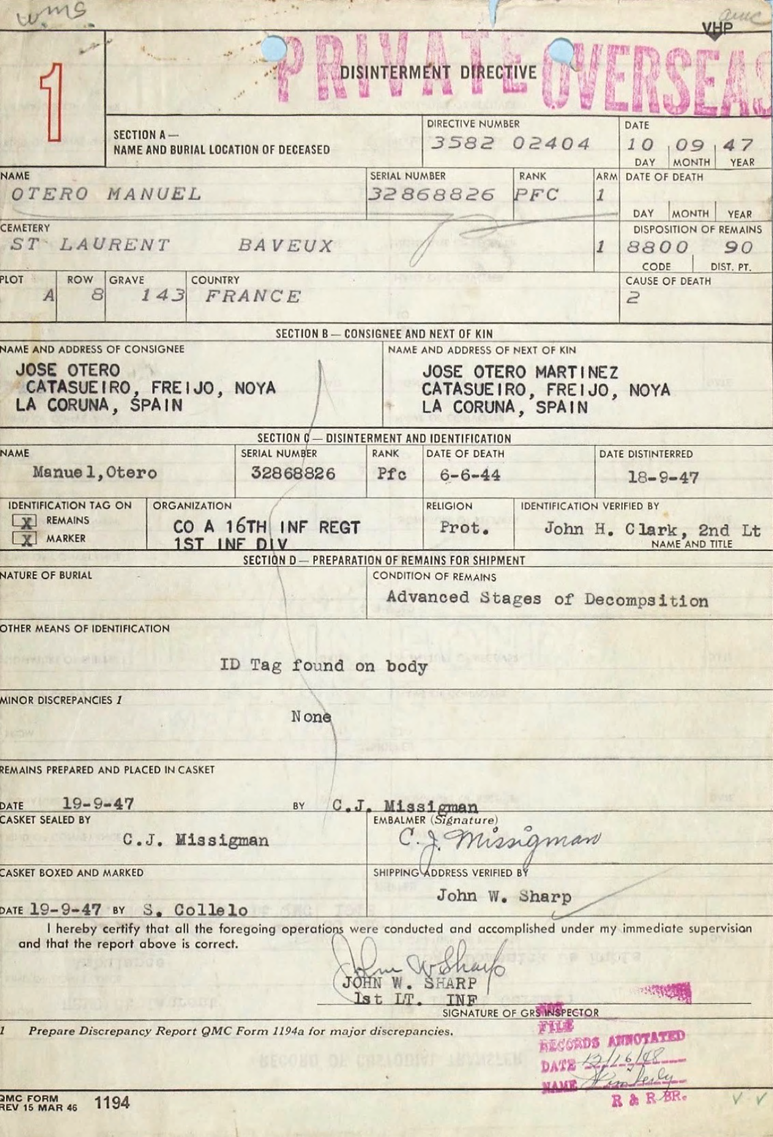 wms
amc
VHP
PRIVATE OVERSEAS
1
DISINTERMENT DIRECTIVE
SECTION A—
NAME AND BURIAL LOCATION OF DECEASED
DIRECTIVE NUMBER
3582 02404
DATE
10 09 47
DAY MONTH YEAR
NAME
OTERO MANUEL
SERIAL NUMBER
32868826
RANK
PFC
ARM
1
DATE OF DEATH
DAY MONTH YEAR
CEMETERY
ST LAURENT BAVEUX
1
DISPOSITION OF REMAINS
8800 90
CODE DIST. PT.
PLOT
A
ROW
8
GRAVE
143
COUNTRY
FRANCE
CAUSE OF DEATH
2
SECTION B — CONSIGNEE AND NEXT OF KIN
NAME AND ADDRESS OF CONSIGNEE
JOSE OTERO
CATASUEIRO, FREIJO, NOYA
LA CORUNA, SPAIN
NAME AND ADDRESS OF NEXT OF KIN
JOSE OTERO MARTINEZ
CATASUEIRO, FREIJO, NOYA
LA CORUNA, SPAIN
SECTION C — DISINTERMENT AND IDENTIFICATION
NAME
Manuel,Otero
SERIAL NUMBER
32868826
RANK
Pfc
DATE OF DEATH
6-6-44
DATE DISTINTERRED
18-9-47
IDENTIFICATION TAG ON
X REMAINS
X MARKER
ORGANIZATION
CO A 16TH INF REGT
1ST INF DIV
RELIGION
Prot.
IDENTIFICATION VERIFIED BY
John H. Clark, 2nd Lt
NAME AND TITLE
SECTION D — PREPARATION OF REMAINS FOR SHIPMENT
NATURE OF BURIAL
CONDITION OF REMAINS
Advanced Stages of Decompsition
OTHER MEANS OF IDENTIFICATION
ID Tag found on body
MINOR DISCREPANCIES 1
None
REMAINS PREPARED AND PLACED IN CASKET
DATE 19-9-47 BY C.J. Missigman
CASKET SEALED BY
C.J. Missigman
EMBALMER (Signature)
C. J. Missigman
CASKET BOXED AND MARKED
DATE 19-9-47 BY S. Collelo
SHIPPING ADDRESS VERIFIED BY
John W. Sharp
I hereby certify that all the foregoing operations were conducted and accomplished under my immediate supervision
and that the report above is correct.
John W Sharp
JOHN W. SHARP
1st LT. INF
SIGNATURE OF GRS INSPECTOR
1 Prepare Discrepancy Report QMC Form 1194a for major discrepancies.
FILE
RECORDS ANNOTATED
DATE 12/16/48
NAME
R & R BR.
QMC FORM
REV 15 MAR 46 1194